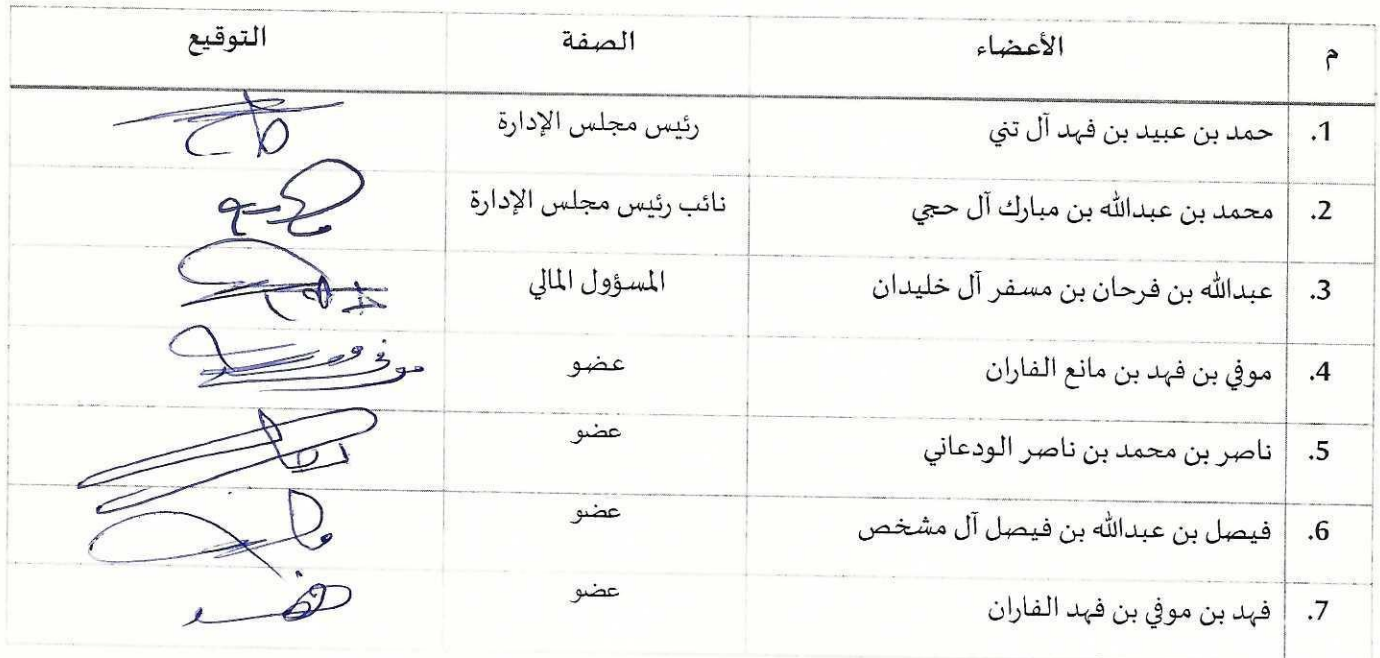 م الأعضاء الصفة التوقيع
1. حمد بن عبيد بن فهد آل تني رئيس مجلس الإدارة
2. محمد بن عبدالله بن مبارك آل حجي نائب رئيس مجلس الإدارة
3. عبدالله بن فرحان بن مسفر آل خليدان المسؤول المالي
4. موفي بن فهد بن مانع الفاران عضو
5. ناصر بن محمد بن ناصر الودعاني عضو
6. فيصل بن عبدالله بن فيصل آل مشخص عضو
7. فهد بن موفي بن فهد الفاران عضو